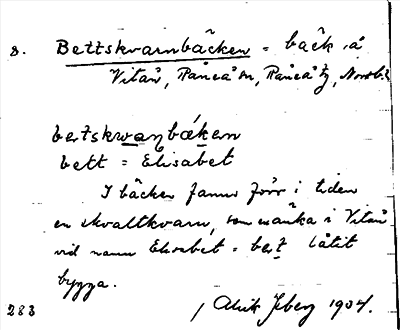 8. Bettskvarnbäcken = bäck å
Vitån, Råneå sn, Råneå tg, Norrb.
bɛtskwaŋbækɛn
bett = Elisabet
I bäcken fanns förr i tiden
en skvaltkvarn, som en änka i Vitån
vid namn Elisabet = bet låtit
bygga.
283 Isberg 1934.